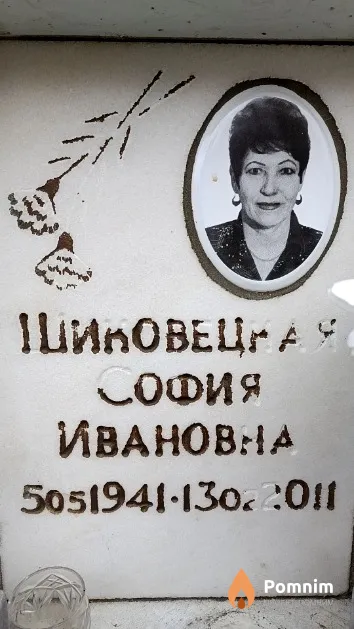 ШИКОВЕЦКАЯ
СОФИЯ
ИВАНОВНА
5051941·13022011
Pomnim